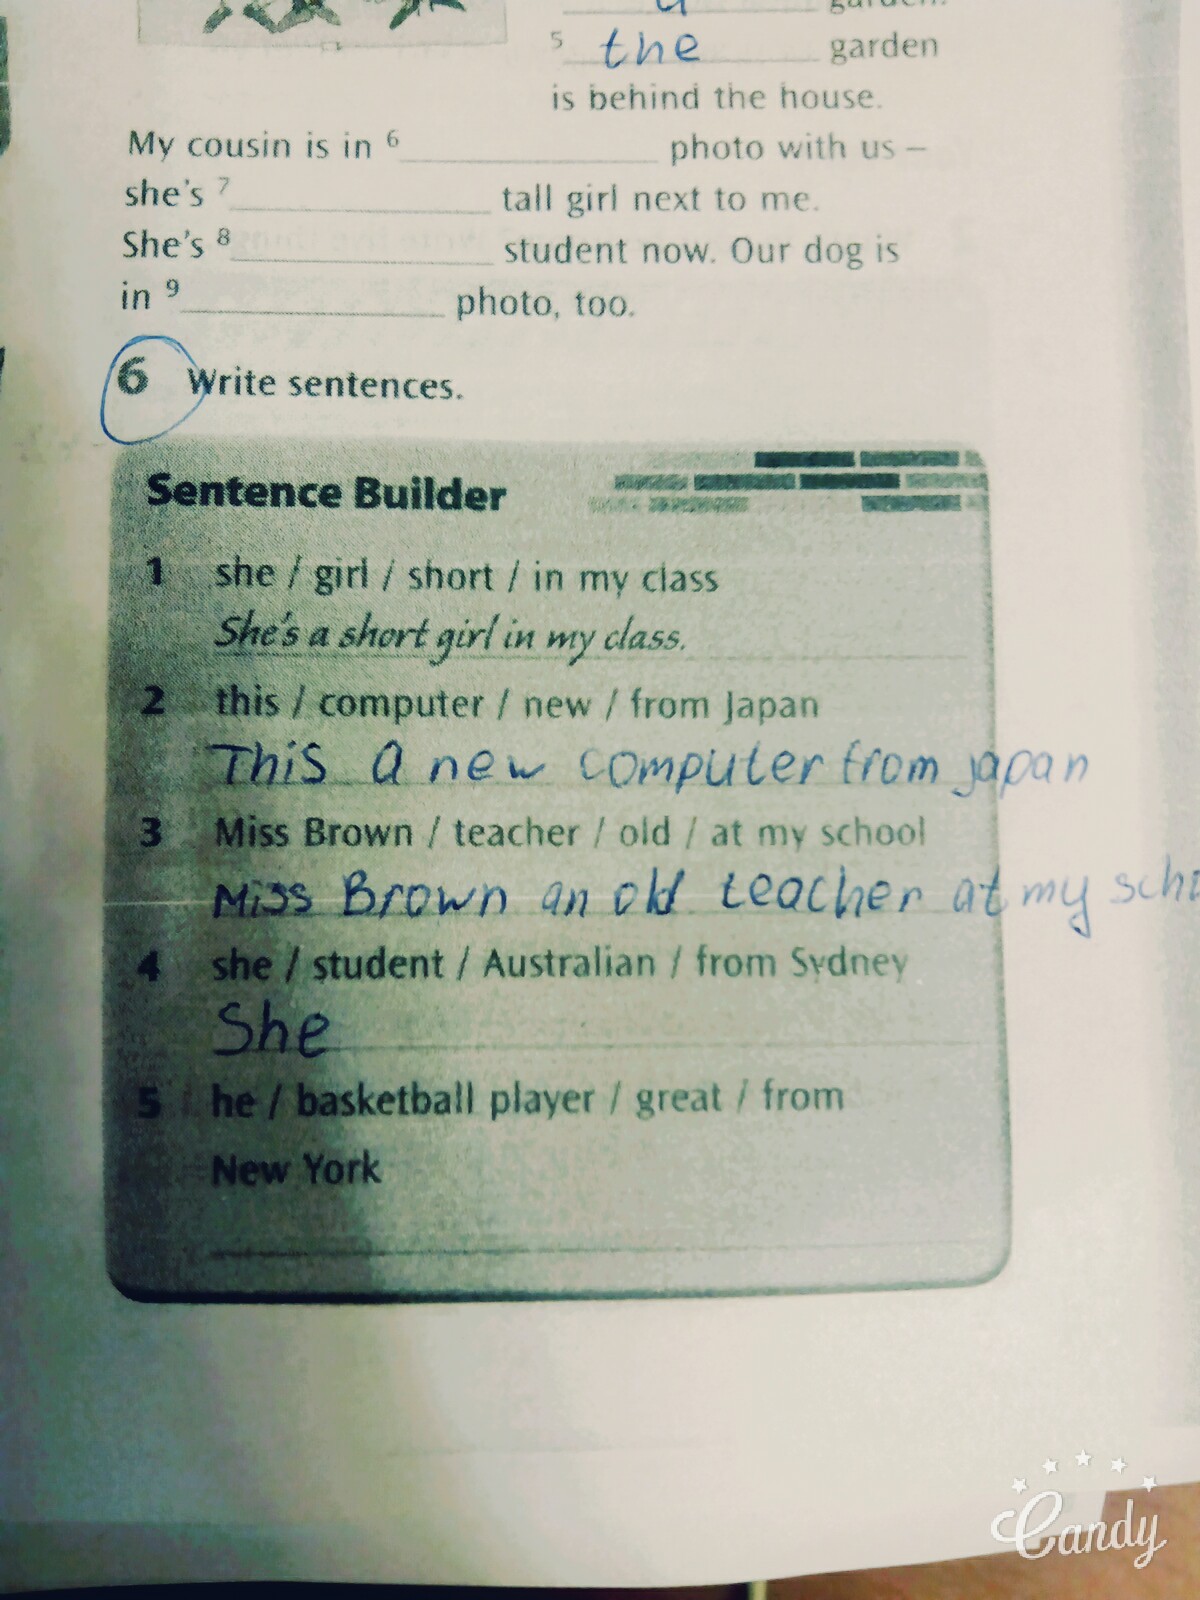 5 the garden
is behind the house.
My cousin is in 6 photo with us –
she's 7 tall girl next to me.
She's 8 student now. Our dog is
in 9 photo, too.
6 Write sentences.
Sentence Builder
1 she / girl / short / in my class
She's a short girl in my class.
2 this / computer / new / from Japan
This a new computer from japan
3 Miss Brown / teacher / old / at my school
Miss Brown an old teacher at my
4 she / student / Australian / from Sydney
She
5 he / basketball player / great / from
New York
Candy